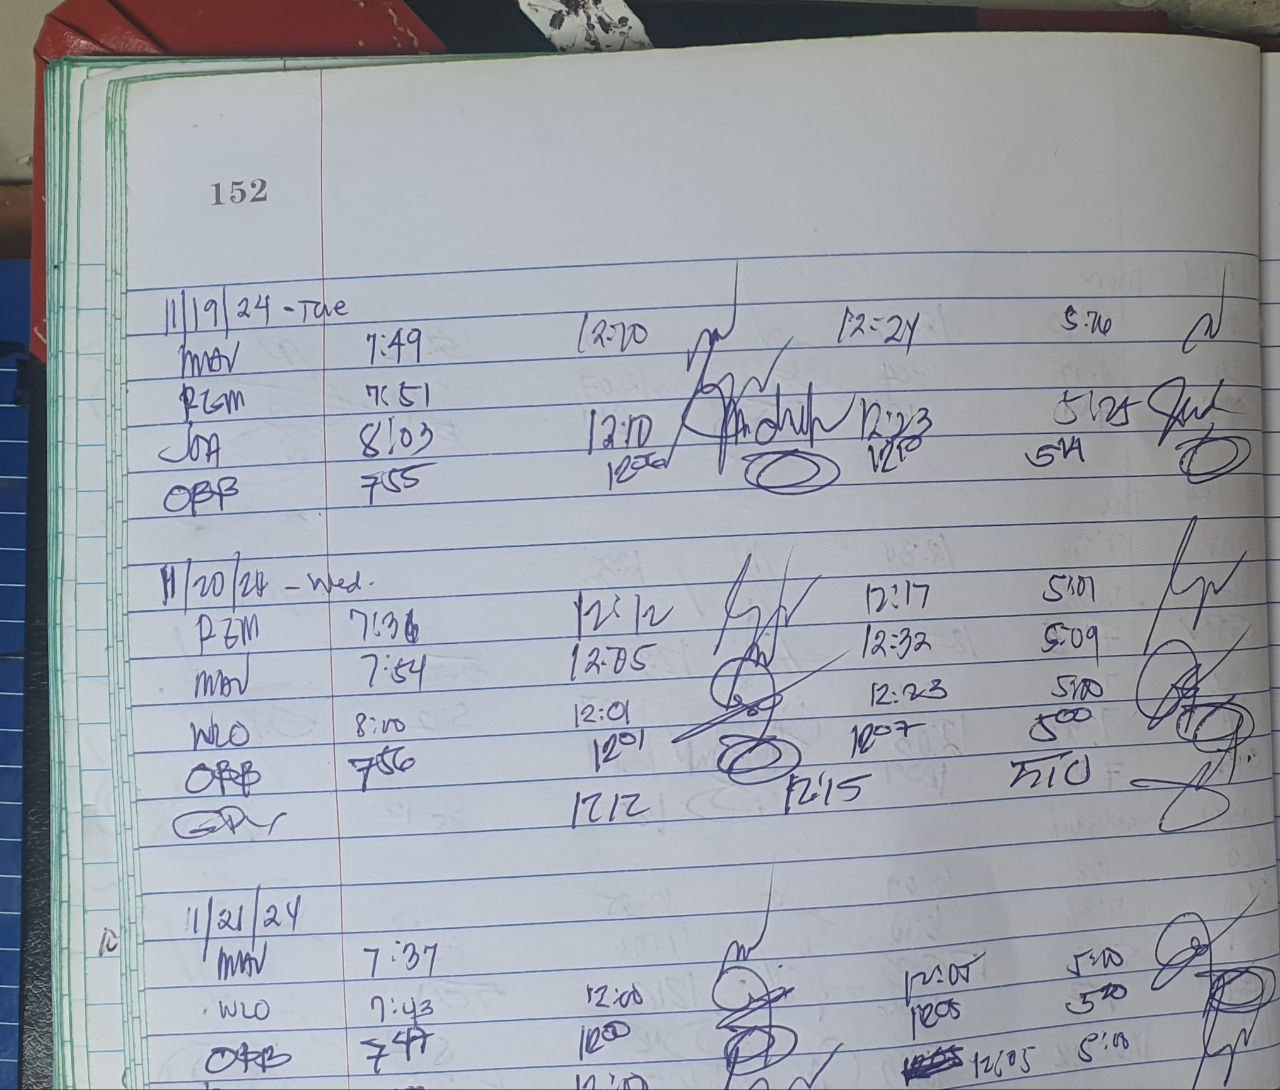 152
11/19/24 - Tue
MAV 7:49 12:20 12:24 5:26
RGM 7:51
JOA 8:03 12:10 12:23 5:25
OBB 755 1206 1210 514
11/20/24 - Wed.
RGM 7:36 12:12 12:17 5:01
MAV 7:54 12:05 12:32 5:09
WLO 8:00 12:01 12:23 5:00
OBB 756 1201 1207 500
1212 12:15 5:10
11/21/24
MAV 7:37
WLO 7:43 12:00 12:05 5:00
OBB 747 1200 1205 500
12:05 5:00